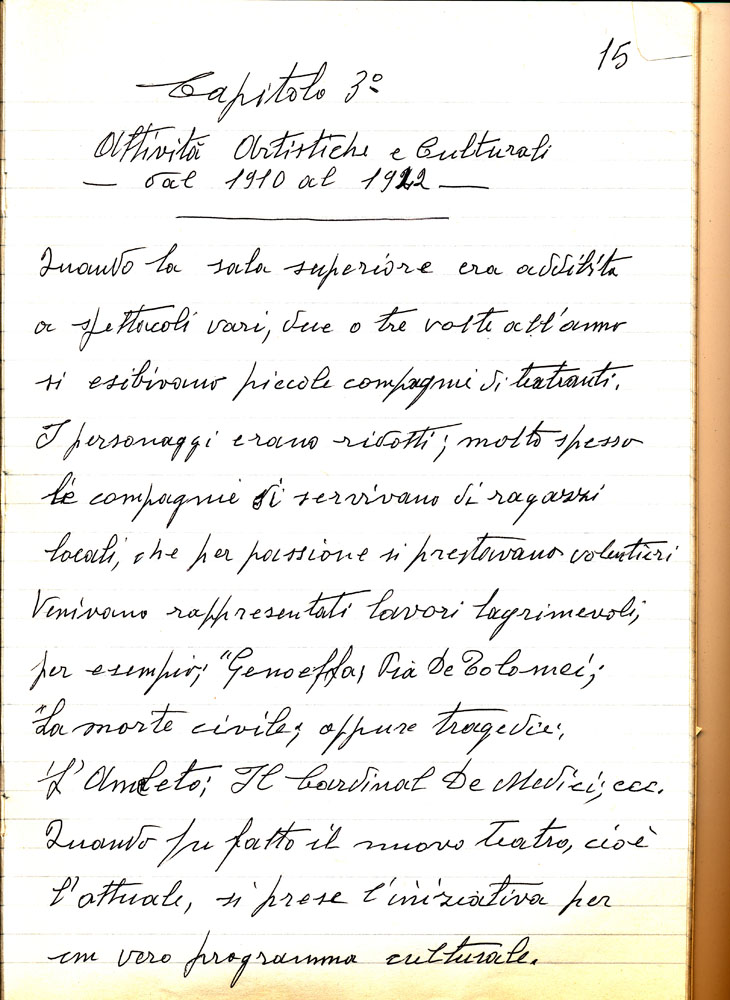 15
Capitolo 3º
Attività Artistiche e Culturali
— dal 1910 al 1922 —
Quando la sala superiore era addibita
a spettacoli vari, due o tre volte all'anno
si esibivano piccole compagnie di teatranti.
I personaggi erano ridotti; molto spesso
le compagnie si servivano di ragazzi
locali, che per passione si prestavano volentieri
Venivano rappresentati lavori lagrimevoli,
per esempio; "Genoeffa, Pia De Tolomei;
"La morte civile; oppure tragedie:,
'L'Amleto; Il Cardinal De Medici; ecc.
Quando fu fatto il nuovo teatro, cioè
l'attuale, si prese l'iniziativa per
un vero programma culturale.